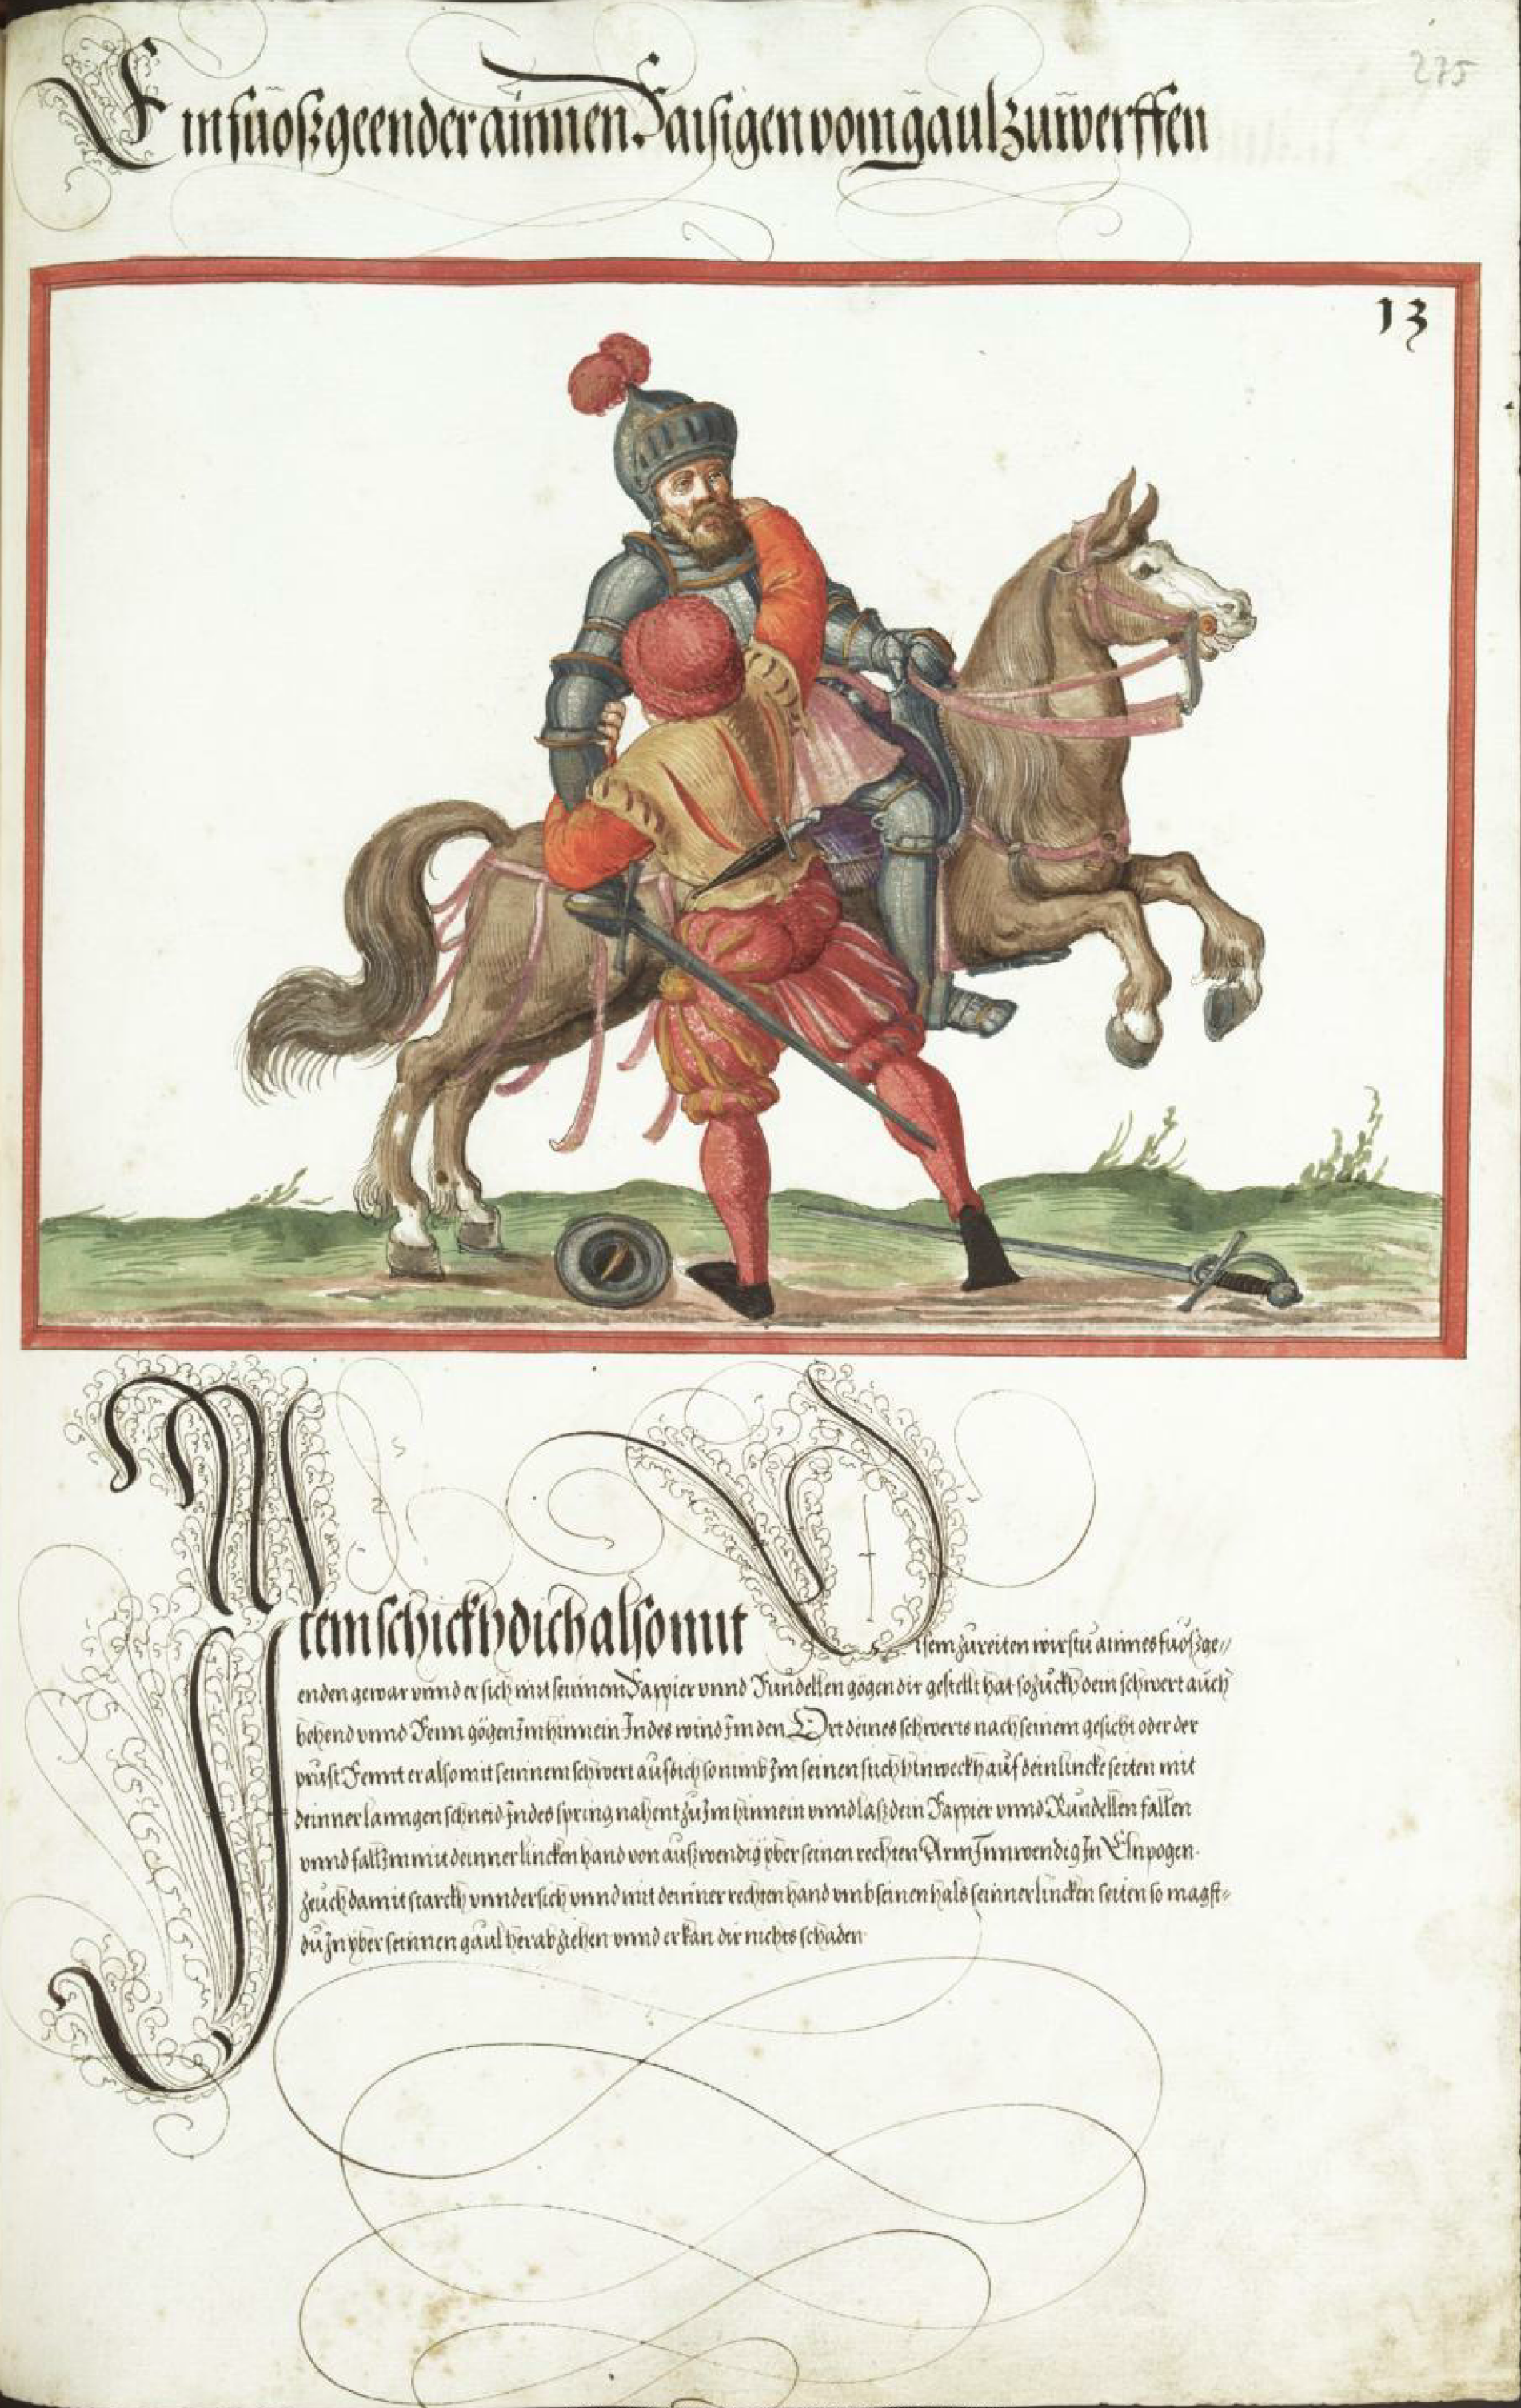 275
Ein fuosz geender ainnen Raisigen vom gaul zuwerffen
13
Item schickh dich also mit Disem zureiten wirstu aines fuosz ge//
enden gewar vnnd er sich mit seinnem Rappier vnnd Rundellen gögen dir gestellt hat so zuckh dein schwert auch
behend vnnd Renn gögen Im hinnein Indes wind Im den Ort deines schwerts nach seinem gesicht oder der
prust Rennt er also mit seinnem schwert auf dich so nimb Im seinen stich hinweckh auf dein lincke seiten mit
deinner lanngen schneid Indes spring nahent zu Im hinnein vnnd lasz dein Rappier vnnd Rundellen fallen
vnnd fall Im mit deinner lincken hand von auszwendig yber seinen rechten Arm Innwendig In Elnpogen.
zeuch damit starckh vnndersich vnnd mit deinner rechten hand vmb seinen hals seinner lincken seiten so magst=
du In yber seinnen gaul herab ziehen vnnd er kan dir nichts schaden